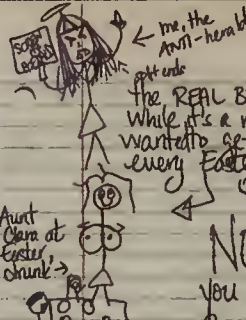 me, the
Anti-herald
split ends
the REAL B
while it's a n
wanted to ge
every Easte
Aunt
Clara at
Easter,
drunk
No
you